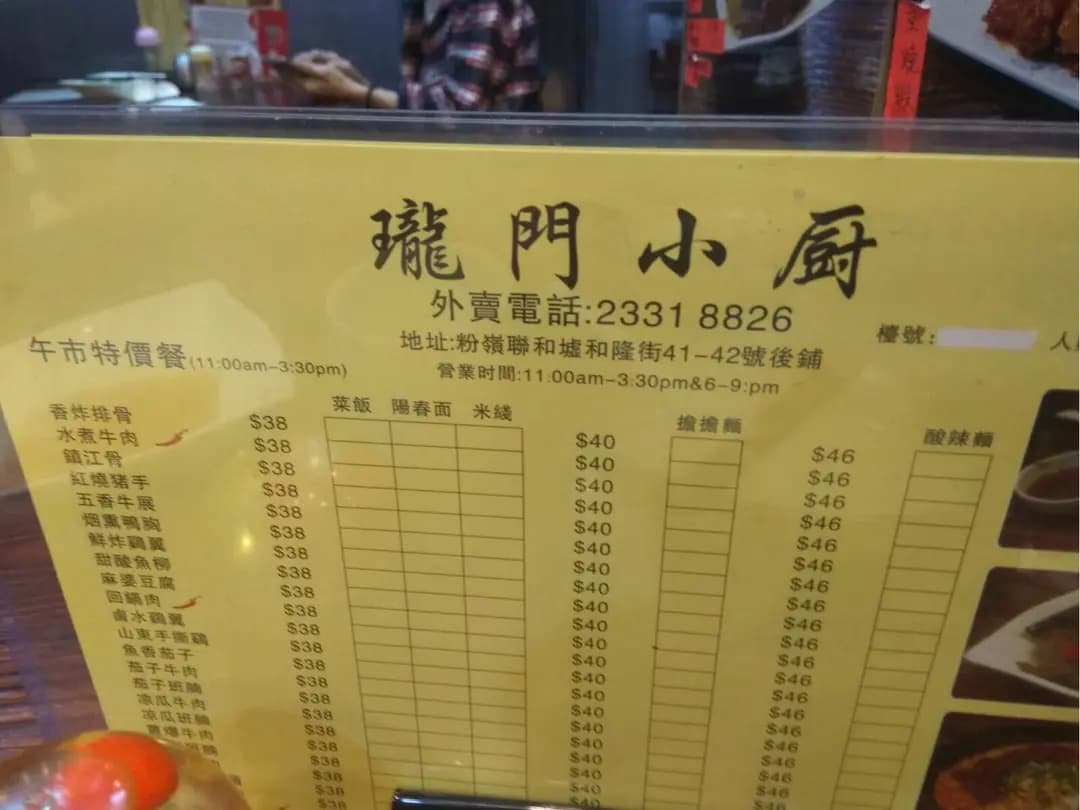 瓏門小厨
外賣電話:2331 8826
地址:粉嶺聯和墟和隆街41-42號後鋪
營業时間:11:00am-3:30pm&6-9:pm
檯號:
人
午市特價餐(11:00am-3:30pm)
菜飯 陽春面 米綫 擔擔麵 酸辣麵
香炸排骨 $38 $40 $46
水煮牛肉 $38 $40 $46
鎮江骨 $38 $40 $46
紅燒猪手 $38 $40 $46
五香牛展 $38 $40 $46
烟熏鴨胸 $38 $40 $46
鮮炸鷄翼 $38 $40 $46
甜酸魚柳 $38 $40 $46
麻婆豆腐 $38 $40 $46
回鍋肉 $38 $40 $46
鹵水鷄翼 $38 $40 $46
山東手撕鷄 $38 $40 $46
魚香茄子 $38 $40 $46
茄子牛肉 $38 $40 $46
茄子班腩 $38 $40 $46
凉瓜牛肉 $38 $40 $46
凉瓜班腩 $38 $40 $46
爆牛肉 $38 $40 $46
班腩 $38 $40 $46
$38 $40 $46